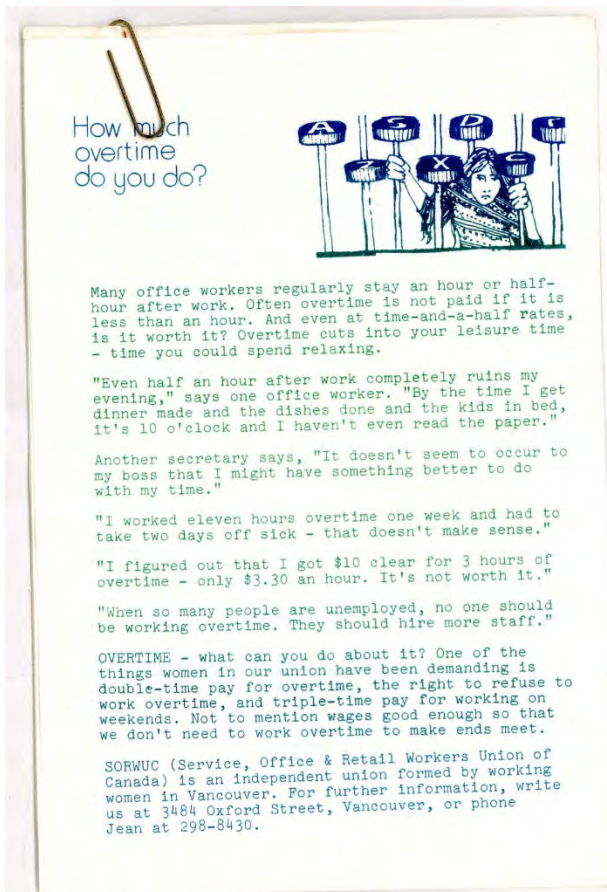 How much
overtime
do you do?
A S D F
Z X C
Many office workers regularly stay an hour or half-
hour after work. Often overtime is not paid if it is
less than an hour. And even at time-and-a-half rates,
is it worth it? Overtime cuts into your leisure time
- time you could spend relaxing.
"Even half an hour after work completely ruins my
evening," says one office worker. "By the time I get
dinner made and the dishes done and the kids in bed,
it's 10 o'clock and I haven't even read the paper."
Another secretary says, "It doesn't seem to occur to
my boss that I might have something better to do
with my time."
"I worked eleven hours overtime one week and had to
take two days off sick - that doesn't make sense."
"I figured out that I got $10 clear for 3 hours of
overtime - only $3.30 an hour. It's not worth it."
"When so many people are unemployed, no one should
be working overtime. They should hire more staff."
OVERTIME - what can you do about it? One of the
things women in our union have been demanding is
double-time pay for overtime, the right to refuse to
work overtime, and triple-time pay for working on
weekends. Not to mention wages good enough so that
we don't need to work overtime to make ends meet.
SORWUC (Service, Office & Retail Workers Union of
Canada) is an independent union formed by working
women in Vancouver. For further information, write
us at 3484 Oxford Street, Vancouver, or phone
Jean at 298-8430.